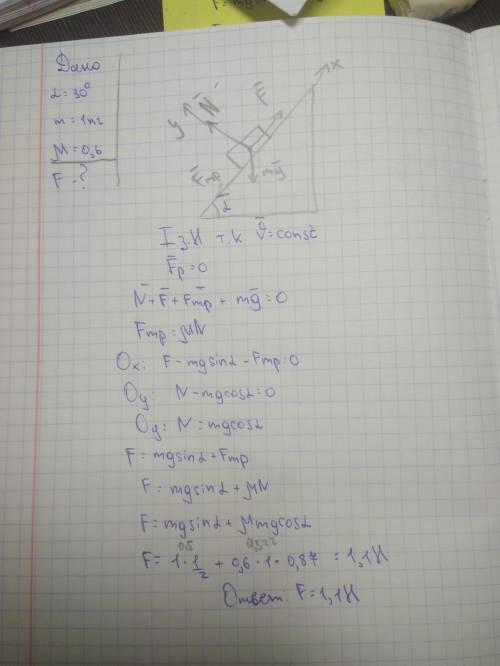 F = mgsin
Дано
α = 30°
m = 1кг
M = 0,6
F - ?
x
F̅
N̅
y
F̅тр
mg̅
α
I з.Н т.к v̅ = const
F̅р = 0
N̅ + F̅ + F̅тр + mg̅ = 0
Fтр = μN
Ox: F - mgsinα - Fтр = 0
Oy: N - mgcosα = 0
Oy: N = mgcosα
F = mgsinα + Fтр
F = mgsinα + μN
F = mgsinα + μmgcosα
0,5 0,522
F = 1 · 1/2 + 0,6 · 1 · 0,87 = 1,1Н
Ответ: F = 1,1Н